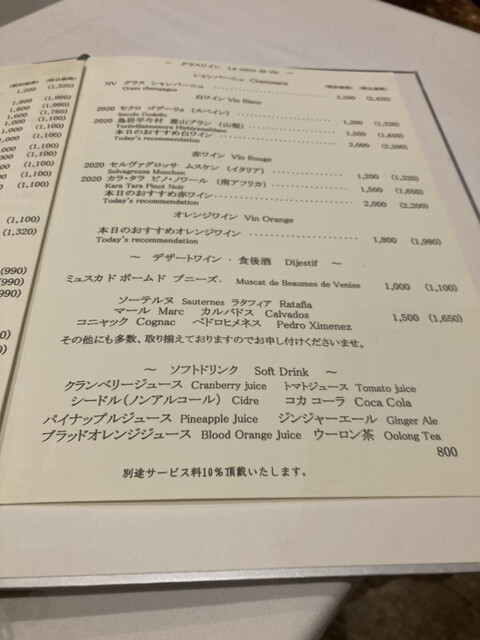 1,200 (1,320)
(1,980)
(1,980)
(1,760)
(1,100)
(1,100)
(1,100)
(1,100)
(1,100)
(1,100)
(1,320)
(990)
(990)
(990)
～ グラスワイン Le verre de vin ～
シャンパーニュ Champagne
NV グラス シャンパーニュ
2,200 (2,420)
白ワイン Vin Blanc
2020 セクロ ゴデーリョ (スペイン)
Seculo Godello 1,200 (1,320)
1,500 (1,650)
本日のおすすめ白ワイン
Today's recommendation 2,000 (2,200)
赤ワイン Vin Rouge
2020 セルヴァグロッサ ムスケン (イタリア)
Selvagrossa Muschen 1,200 (1,320)
2020 カラ・タラ ピノ・ノワール (南アフリカ)
Kara Tara Pinot Noir 1,500 (1,650)
本日のおすすめ赤ワイン
Today's recommendation 2,000 (2,200)
オレンジワイン Vin Orange
本日のおすすめオレンジワイン
Today's recommendation 1,800 (1,980)
～ デザートワイン・食後酒 Dijestif ～
ミュスカ ド ボームド ブニーズ. Muscat de Beaumes de Venise 1,000 (1,100)
ソーテルヌ Sauternes ラタフィア Ratafia
マール Marc カルバドス Calvados
コニャック Cognac ペドロヒメネス Pedro Ximenez 1,500 (1,650)
その他にも多数、取り揃えておりますのでお申し付けくださいませ。
～ ソフトドリンク Soft Drink ～
クランベリージュース Cranberry juice トマトジュース Tomato juice
シードル(ノンアルコール) Cidre コカ コーラ Coca Cola
パイナップルジュース Pineapple Juice ジンジャーエール Ginger Ale
ブラッドオレンジジュース Blood Orange Juice ウーロン茶 Oolong Tea
800
別途サービス料10%頂戴いたします。